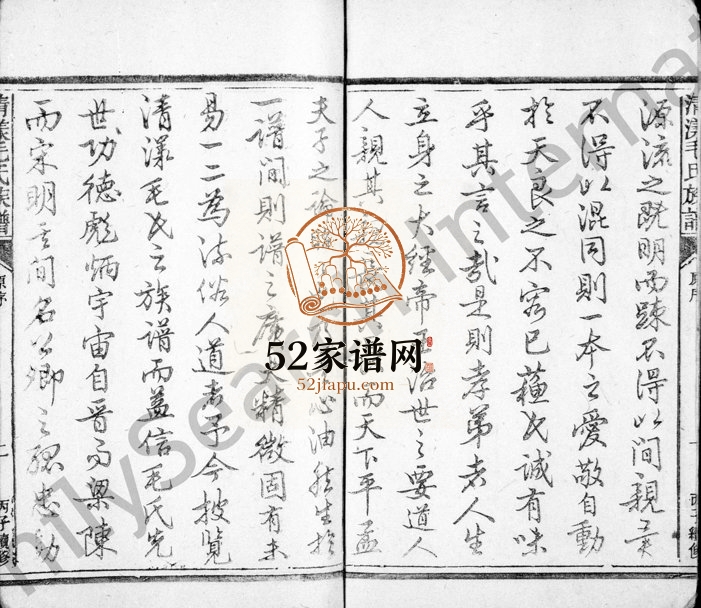 清漾毛氏族譜
原序
一
丙子續修
源流之既明而疎不得以間親異
不得以混同則一本之愛敬自動
於天良之不容已蘓氏誠有味
乎其言之哉是則孝弟者人生
立身之大經帝王治世之要道人
人親其其而天下平孟
夫子之心油然生於
一譜間則譜之廣大精微固有未
易一二為流俗人道者予今披覽
清漾毛氏之族譜而益信毛氏先
世功德彪炳宇宙自晋而梁陳
而宋明其間名公卿之孤忠勁
清漾毛氏族譜
原序
一
丙子續修
52家谱网
52jiapu.com
milySearch Internat